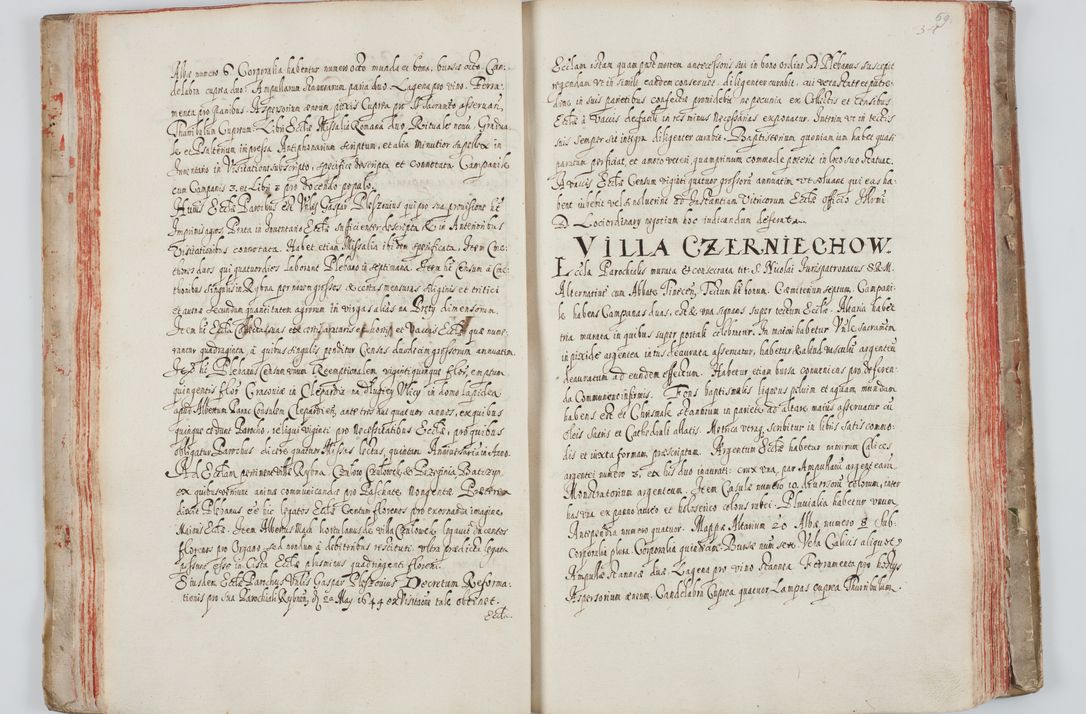 Albæ numero 6 Corporalia habentur numero octo munda et bona, bursæ octo Can-
delabra cuprea duo. Ampullarum stannearum paria duo. Lagena pro vino. Ferra-
menta pro panibus. Aspersorium æneum, pixis Cuprea pro asservari.
Thuribulum Cupreum. Libri Ecclæ Missalia Romana duo, Rituale Gradua-
le et Psalterium impressa Antiphonarium scriptum, et alia minutior supellex in
Inventario in Visitatione subscripto, specifice descripta et connotata Campanile
cum Campanis 3. et pro docendo populo.
Huius Ecclæ Parochus est Vnlis Gaspar Pleszenius qui pro sua provisione ht
agros, Prata in Inventario Ecclæ sufficienter descripta & in Anterioribus
Visitationibus connotata. Habet etiam Missalia ibidem specificata. Item Cme-
thones duos qui quatuor dies laborant Plebano in septimana. Item ht Censum a Cme-
thonibus singulis in Rybna per novem grossos & certas mensuras siliginis et tritici
et avena secundum quantitatem agrorum in virgas alias na Pręty dimensorum.
Item ht Ecclã et horti et Vaccas Ecclæ quæ nume-
rantur quadraginta, a quibus singulis penditur Census duodecim grossorum annuatim.
Item ht Plebanus Censum unum Reemptionalem viginti quinque flor, emptum
quingentis flor Cracoviæ in Clepardia na Dlugiey Vlicy in domo lapidea
apud Albertum Consulem Clepardien, ante tres vel quatuor annos, ex quibus
quinque cedunt Parocho, reliqui viginti pro Necessitatibus Ecclæ, pro quibus
obligatur Parochus dicere quatuor Missas lectas, quidem in Anno.
Ad Ecclam pertinent villæ Rybna
ex quibus solent animæ communicandæ pro Paschate, Nongentæ. Præterea
dicit Plebanus esse hic legatos Ecclæ Centum florenos pro exornanda imagine
Maioris Ecclæ. Item Albertus hortulanus de villa legavit ducentos
florenos pro Organo sed nondum a debitoribus restituti. vltra prædicta legata
esse in Cista Ecclæ plus minus quadringenti floreni.
Eiusdem Ecclæ Parochus Vnlis Gaspar Pleszenius Decretum Reforma-
tionis pro sua Parochiali Rybnen, 2da Maij 1644 ex Visitatione tale obtinet.
Eccla
59.
Ecclam istam quam post mortem antecessoris sui in bono ordine D Plebanus suscepit
regendam vt in simili eandem conservet, diligenter curabit, cui vetustate et putre-
dine in suis parietibus confectæ providebit ne pecunia ex Collectis et Censibus
Ecclæ a Vaccis desumpta in res minus necessarias exponatur. Interim vt in tectis
suis semper sit integra diligenter curabit. Baptisterium quoniam iam habet quasi
paratum perficiat, et amoto veteri quamprimum commode poterit in loco suo statuat.
A vaccis Ecclæ Censum viginti quatuor grossorum annuatim vt solvant qui eas ha-
bent iubebit vel si noluerint ad instantiam Vitricorum Ecclæ officio Illrmi
D. Lociordinarij negotium hoc iudicandum deferat.
VILLA CZERNIECHOW.
Eccla Parochialis murata & consecrata tit: S. Nicolai Iurispatronatus SRM.
Alternatim cum Abbate Tinecen, Tectum ht bonum. Cœmiterium septum. Campani-
le habens Campanas duas, est & vna signans super tectum Ecclæ. Altaria habet
tria murata in quibus super portatili celebratur. In maiori habetur Vnle sacramtm
in pixide argentea intus deaurata asservatur, habetur & aliud vasculum argenteum
deauratum ad eundem effectum. Habetur etiam bursa conveniens pro defferen-
da Communione infirmis. Fons baptismalis ligneus pelvim et aquam mundam
habens est et Chrismale stannium in pariete ad altare maius asservatur cum
oleis sacris et Cathedrali allatis. Metrica vtraq scribitur in libris satis commo-
dis et iuxta formam præscriptam. Argentum Ecclæ habetur nimirum Calices
argentei numero 3, ex his duo inaurati: crux vna, par Ampullarum argentearum
Monstratorium argenteum. Item Casulæ numero 10 diversorum colorum, inter
has vna ex panno aureo et holoserico coloris rubei. Pluvialia habetur vnum
Antipendia numero quatuor. Mappæ Altarium 20 Albæ numero 8 Sub-
Corporalia plura Corporalia quindecim. Bursæ num sex. Vela Calicis aliquot,
Ampullæ stanneæ duæ. Lagena pro vino stannea. Ferramenta pro hostijs
Aspersorium æneum. Candelabra Cuprea quatuor Lampas cuprea Thuribulum